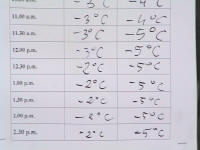 -3°C -4°C
11.00 a.m. -3°C -4°C
11.30 a.m. -3°C -5°C
12.00 p.m. -3°C -5°C
12.30 p.m. -2°C -5°C
1.00 p.m. -2°C -5°C
1.30 p.m. -2°C -5°C
2.00 p.m. -2°C -5°C
2.30 p.m. -2°C -5°C